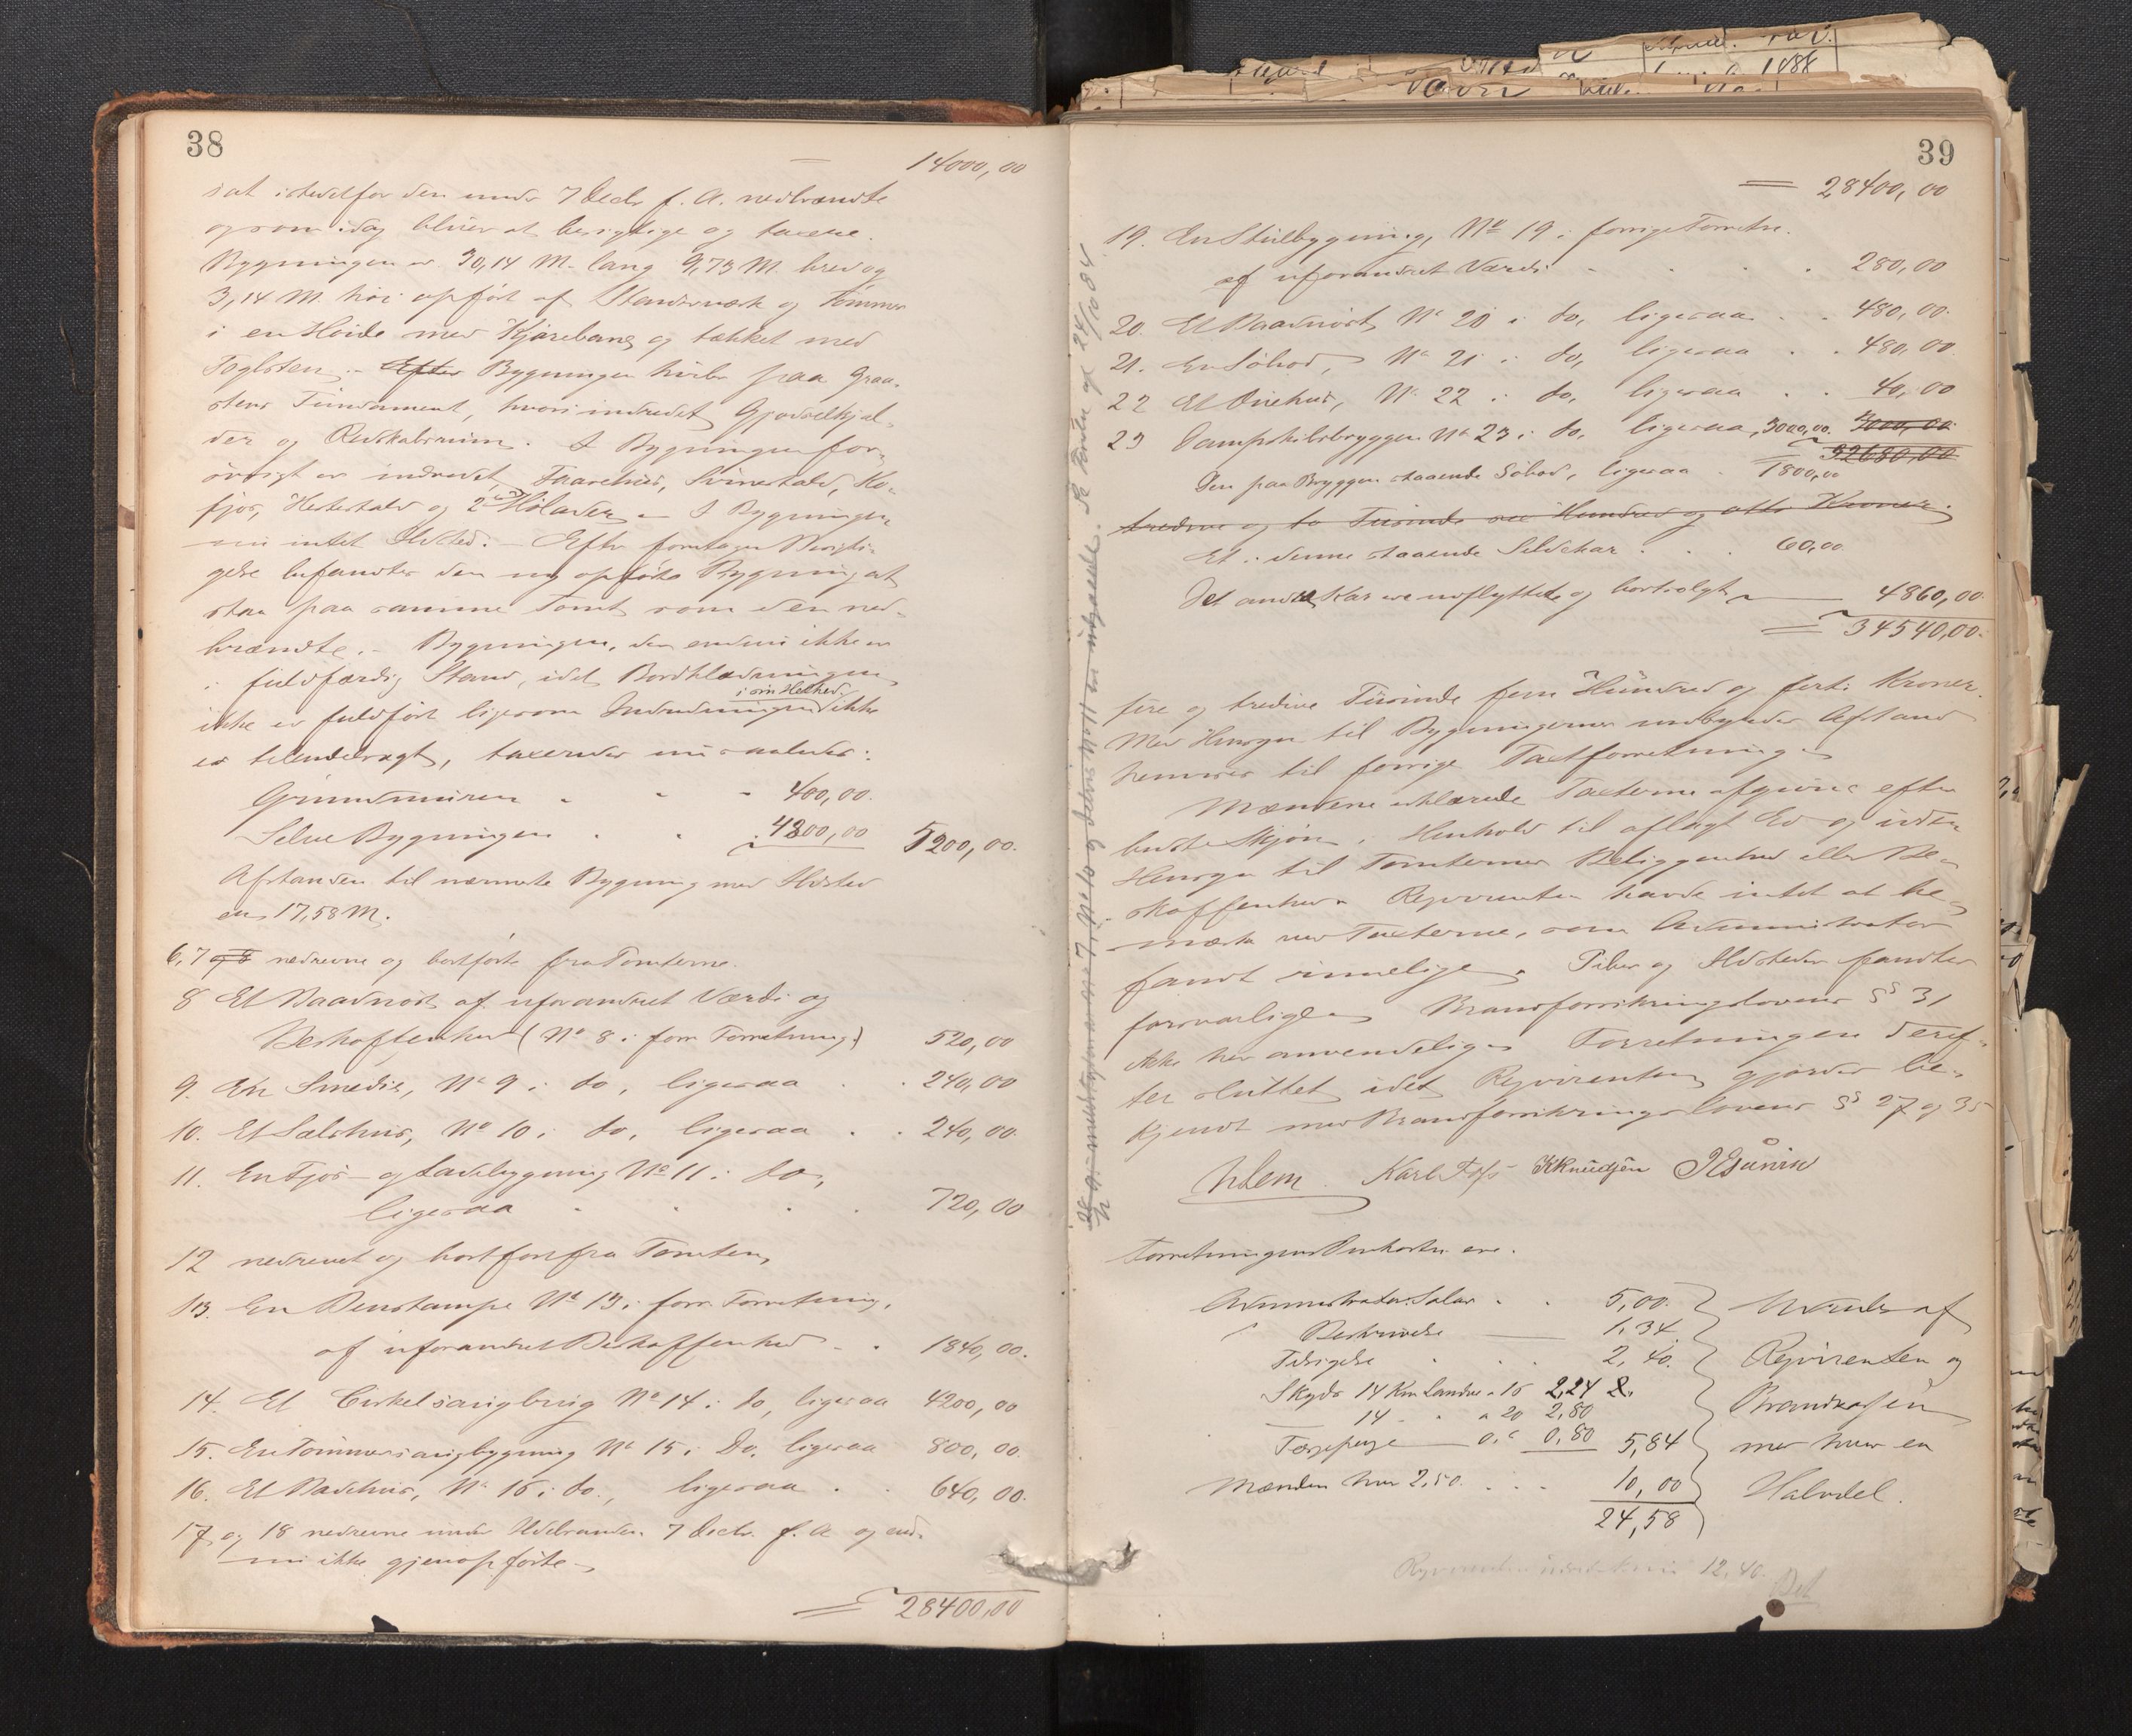 38
= 14000,00
sat istedetfor den under 7 Decbr f. A. nedbrændte
og som idag bliver at besigtige og taxere.
Bygningen er 30,14 M. lang 9,73 M. bred og
3,14 M. høi opført af Standerværk og Tømmer
i en Høide med Kjørebane og tækket med
Taglsten. – Efter Bygningen hviler paa Graa-
stens Fundament, hvori indredet Gjødselkjel-
der og Redskabsrum. I Bygningen for-
øvrigt er indredet Faarehus, Svinestald, Ko-
fjøs, Hestestald og 2de Hølader. – I Bygningen
nu intet Ildsted. – Efter foretagen Besigti-
gelse befandtes den ny opførte Bygning at
staa paa samme Tomt som den ned-
brændte. – Bygningen, der endnu ikke er
i fuldfærdig Stand, idet Bordklædningen
ikke er fuldført ligesom Indredningen i sin Helhed ikke
er tilendebragt, taxeredes nu saaledes:
Grundmuren - - - 400,00.
Selve Bygningen . . 4800,00 5200,00.
Afstanden til nærmeste Bygning med Ildsted
er 17,58 M.
6, 7 og 8 nedrevne og bortførte fra Tomterne.
8 Et Baadnøst af uforandret Værdi og
Beskaffenhed (No 8 i forr Forretning) 520,00
9. En Smedie, No 9 i do, ligesaa . . 240,00
10. Et Saltehus, No 10 i do, ligesaa . . 240,00.
11. En Fjøs- og Ladebygning No 11 i do,
ligesaa . . . . 720,00
12 nedrevet og bortført fra Tomten,
13. En Benstampe No 13 i forr. Forretning,
af uforandret Beskaffenhed . . 1840,00.
14. Et Cirkelsaugbrug No 14 i do, ligesaa 4200,00
15. En Tømmersaugbygning No 15 i Do. ligesaa 800,00.
16. Et Badehus, No 16 i do., ligesaa . . 640,00.
17 og 18 nedrevne under Ildebranden 7 Decbr. f. A og end-
nu ikke gjenopførte.
= 28400,00
39
= 28400,00
19. En Stuebygning, No 19 i forrige Forretn.
af uforandret Værdi - . . . 280,00
20. Et Baadnøst No 20 i do, ligesaa . . 480,00.
21. En Søbod, No 21 i do, ligesaa . . 480,00
22 Et Øvehus, No 22 i do, ligesaa . . 40,00
23 Dampskibsbryggen No 23 i do, ligesaa, 3000,00. 3000,00
32680,00
Den paa Bryggen staaende Søbod, ligesaa . 1800,00
tredive og to Tusinde sex Hundred og otti Kroner.
Et i denne staaende Sildekar . . . 60,00.
Det andre Kar ere udflyttede og bortsolgt 4860,00.
= 34540,00.
fire og tredive Tusinde fem Hundred og forti Kroner.
Med Hensyn til Bygningernes indbyrdes Afstand
henvises til forrige Taxtforretning.
Mændene erklærede Taxterne afgivne efter
bedste Skjøn i Henhold til aflagt Ed og uden
Hensyn til Tomternes Beliggenhed eller Be-
skaffenhed. Reqvirenten havde intet at be-
mærke ved Taxterne, som Administrator
fandt rimelige. Piber og Ildsteder fandtes
forsvarlige. Brandforsikringslovens §§ 31
ikke her anvendelig. Forretningen deref-
ter sluttet idet Reqvirenten gjordes be-
kjendt med Brandforsikringslovens §§ 27 og 35
Karl K Knudsen
Forretningens Omkostn ere.
Administrator Salær . . 5,00.
Beskrivelse 1,34.
Tilsigelse . . . 2,40.
Skyds 14 Km Landvei a 16 2,24
14 - - a 20 2,80
Færgepenge 0,80 5,84
Mænden hver 2,50. . . . 10,00
24,58
Udredes af
Reqvirenten og
Brandkassen
med hver en
Halvdel.
12,40.